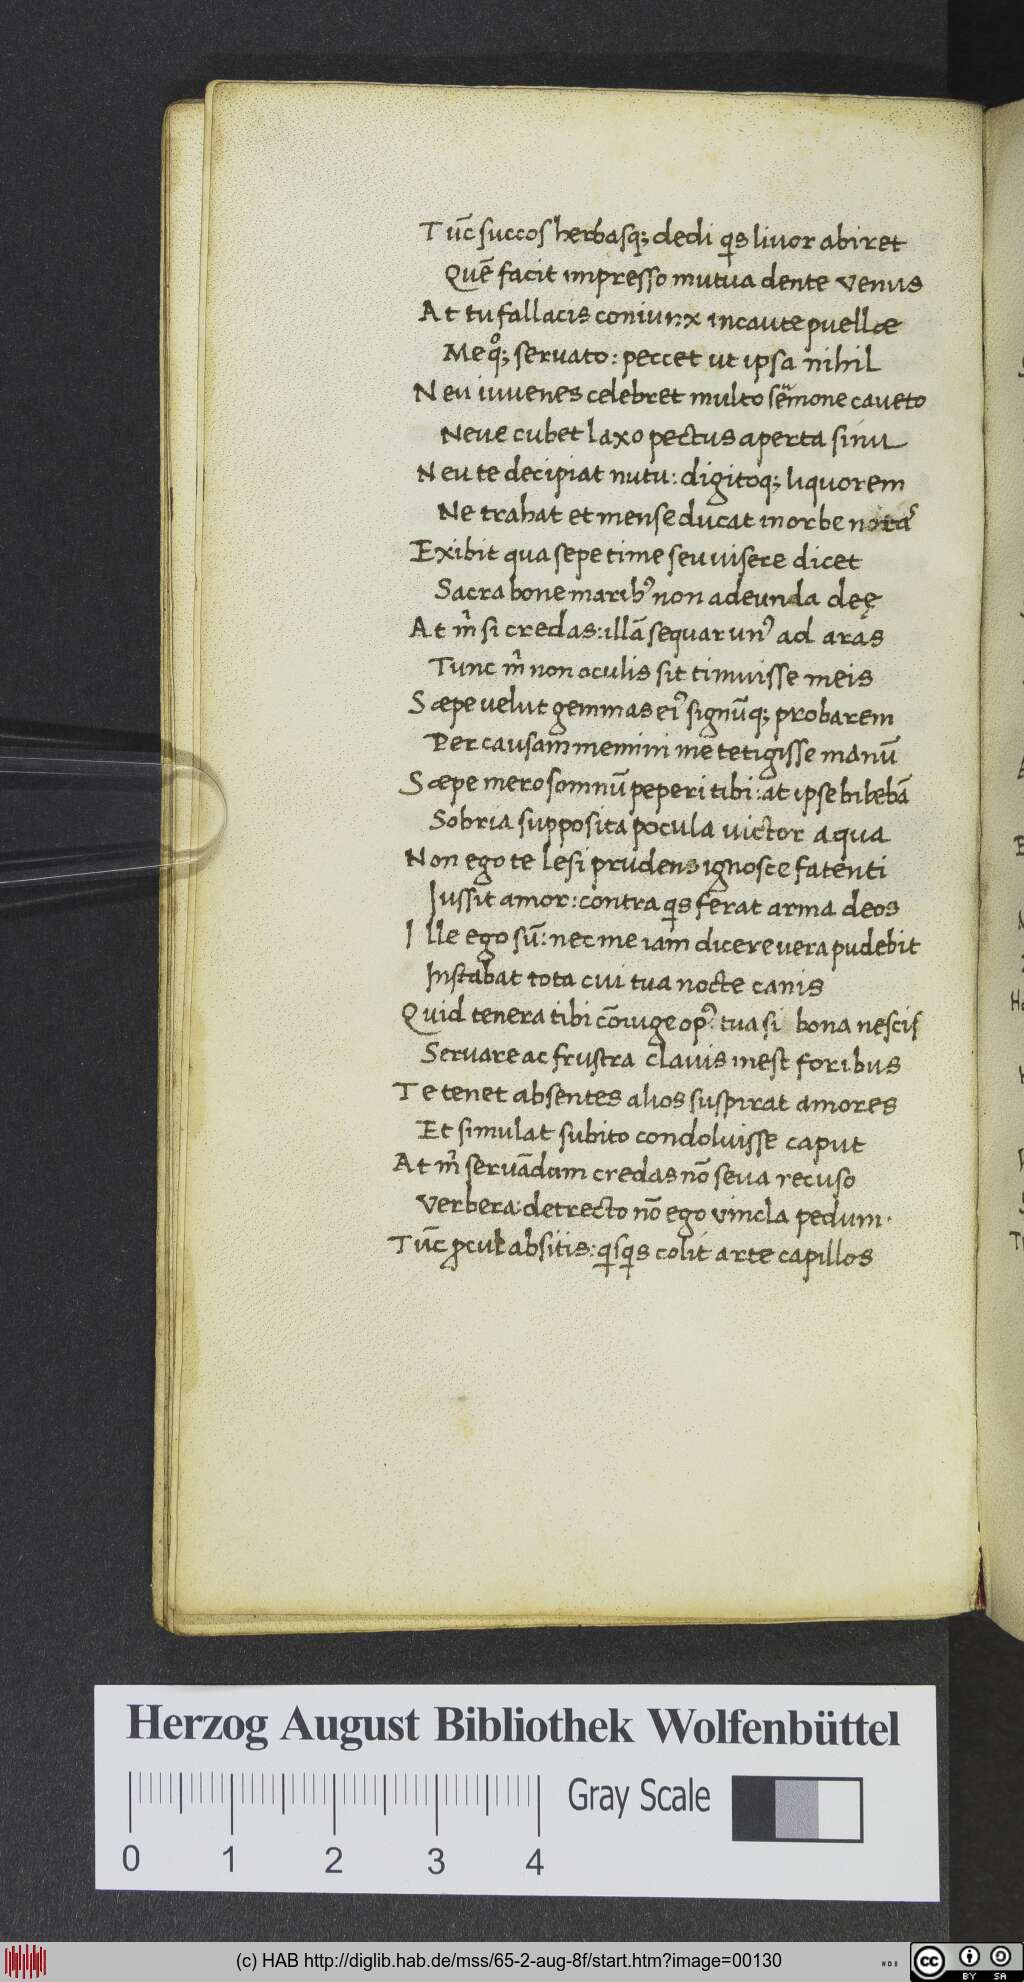 Tūc succos herbasq; dedi q̄s liuor abiret
Quē facit impresso mutua dente venus
At tu fallacis coniunx incaute puellæ
Me qͦ; seruato: peccet ut ipsa nihil
Neu iuuenes celebret multo sēmone caueto
Neue cubet laxo pectus aperta sinu
Neu te decipiat nutu: digitoq; liquorem
Ne trahat et mense ducat in orbe notā
Exibit qua sepe time seu uisere dicet
Sacra bone maribꝰ non adeunda deę
At m̄ si credas: illā sequar unꝰ ad aras
Tunc m̄ non oculis sit timuisse meis
Sæpe uelut gemmas eiꝰ signūq; probarem
Per causam memini me tetigisse manū
Sæpe mero somnū peperi tibi: at ipse bibebā
Sobria supposita pocula uictor aqua
Non ego te lesi prudens ignosce fatenti
Jussit amor: contra q̄s ferat arma deos
Ille ego sū: nec me iam dicere uera pudebit
Instabat tota cui tua nocte canis
Quid tenera tibi cōiuge opꝰ: tua si bona nescis
Seruare ac frustra clauis inest foribus
Te tenet absentes alios suspirat amores
Et simulat subito condoluisse caput
At m̄ seruādam credas nō seua recuso
Verbera: detrecto nō ego vincla pedum.
Tūc ꝓcul absitis: q̄sq̄s colit arte capillos
Herzog August Bibliothek Wolfenbüttel
Gray Scale
0 1 2 3 4
(c) HAB http://diglib.hab.de/mss/65-2-aug-8f/start.htm?image=00130
WDB
cc BY SA